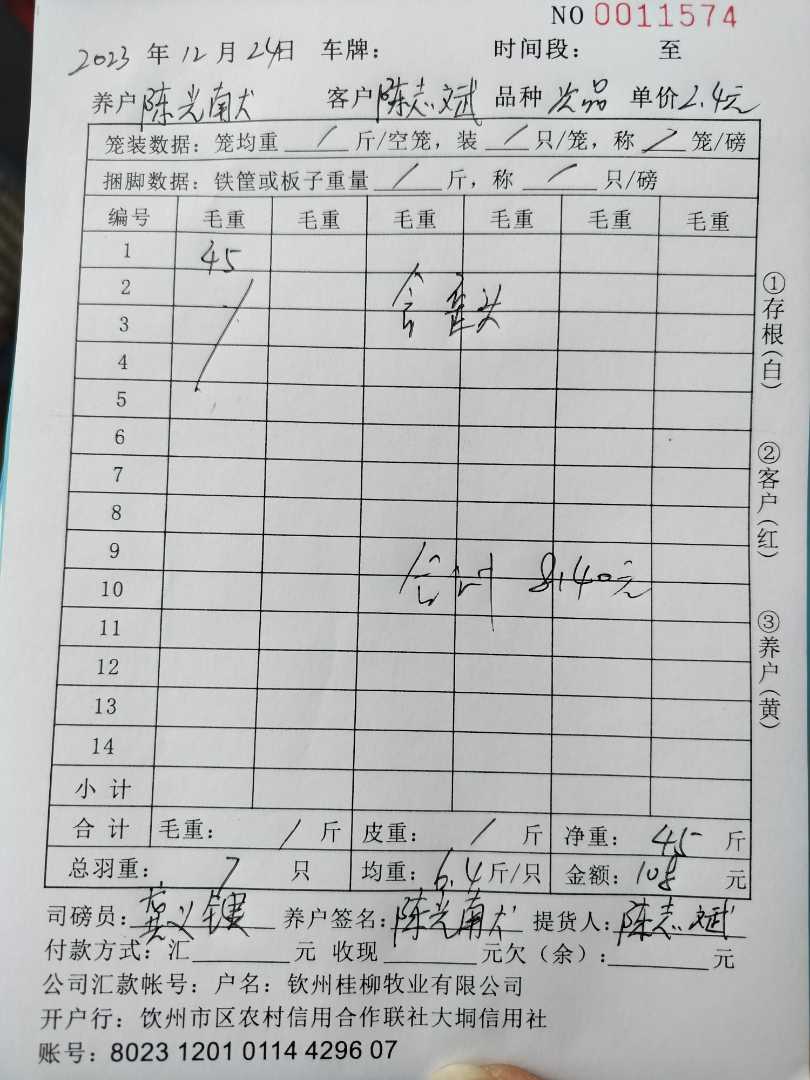 NO 0011574
2023 年 12 月 24日 车牌： 时间段： 至
养户 陈光南犬 客户 陈志斌 品种 次品 单价 2.4元
笼装数据：笼均重 / 斤/空笼，装 / 只/笼，称 / 笼/磅
捆脚数据：铁筐或板子重量 / 斤，称 / 只/磅
编号 毛重 毛重 毛重 毛重 毛重 毛重
1 45
2 含歪头
3
4
5
6
7
8
9
10 合计 8140元
11
12
13
14
小计
合计 毛重： / 斤 皮重： / 斤 净重： 45 斤
总羽重： 7 只 均重： 6.4 斤/只 金额： 108 元
司磅员： 龚 养户签名： 陈光南犬 提货人： 陈志斌
付款方式：汇 元 收现 元欠（余）： 元
公司汇款帐号：户名：钦州桂柳牧业有限公司
开户行：钦州市区农村信用合作联社大垌信用社
账号：8023 1201 0114 4296 07
①存根（白）
②客户（红）
③养户（黄）